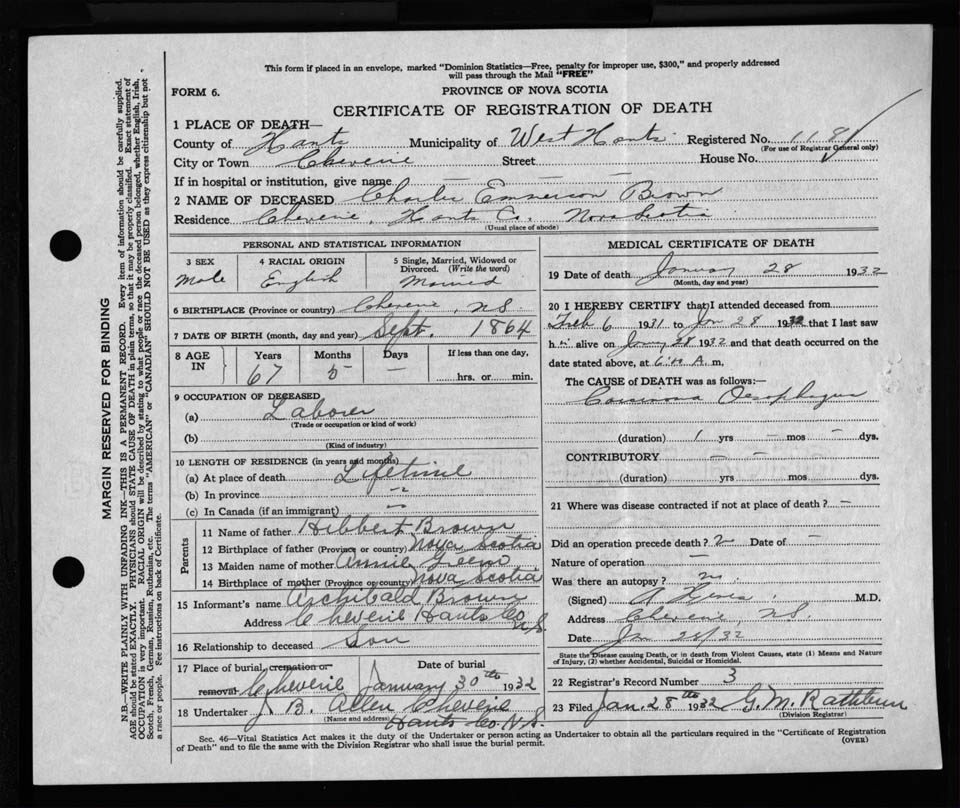 This form if placed in an envelope, marked "Dominion Statistics—Free, penalty for improper use, $300," and properly addressed
will pass through the Mail "FREE"
FORM 6.
PROVINCE OF NOVA SCOTIA
CERTIFICATE OF REGISTRATION OF DEATH
1 PLACE OF DEATH—
County of Hants Municipality of West Hants Registered No. 118
(For use of Registrar General only)
City or Town Cheverie Street — House No. —
If in hospital or institution, give name — — —
2 NAME OF DECEASED Charles Emmerson Brown
Residence Cheverie, Hants Co. Nova Scotia
(Usual place of abode)
PERSONAL AND STATISTICAL INFORMATION
3 SEX 4 RACIAL ORIGIN 5 Single, Married, Widowed or Divorced. (Write the word)
Male English Married
6 BIRTHPLACE (Province or country) Cheverie, N.S.
7 DATE OF BIRTH (month, day and year) Sept. 1864
8 AGE IN Years Months Days If less than one day,
67 5 — ........hrs. or........min.
9 OCCUPATION OF DECEASED
(a) Laborer
(Trade or occupation or kind of work)
(b)
(Kind of industry)
10 LENGTH OF RESIDENCE (in years and months)
(a) At place of death Lifetime
(b) In province —
(c) In Canada (if an immigrant) —
Parents
11 Name of father Hibbert Brown
12 Birthplace of father (Province or country) Nova Scotia
13 Maiden name of mother Annie Greeno
14 Birthplace of mother (Province or country) Nova Scotia
15 Informant's name Archibald Brown
Address Cheverie Hants Co N.S.
16 Relationship to deceased Son
17 Place of burial, cremation or removal Cheverie Date of burial January 30th 1932
18 Undertaker J. B. Allen Cheverie
(Name and address) Hants Co. N.S.
MEDICAL CERTIFICATE OF DEATH
19 Date of death January 28 1932
(Month, day and year)
20 I HEREBY CERTIFY that I attended deceased from
Feb 6 1931 to Jan 28 1932 that I last saw
h im alive on Jany 28 1932 and that death occurred on the
date stated above, at A m,
The CAUSE of DEATH was as follows:—
Carcinoma Oesophagus
(duration) 1 yrs — mos — dys.
CONTRIBUTORY — —
(duration) yrs mos dys.
21 Where was disease contracted if not at place of death? —
Did an operation precede death? Date of —
Nature of operation —
Was there an autopsy? no
(Signed) M.D.
Address Cheverie, N.S.
Date Jan 28/32
State the Disease causing Death, or in death from Violent Causes, state (1) Means and Nature
of Injury, (2) whether Accidental, Suicidal or Homicidal.
22 Registrar's Record Number 3
23 Filed Jan. 28th 1932 G. M. Rathbun
(Division Registrar)
Sec. 46—Vital Statistics Act makes it the duty of the Undertaker or person acting as Undertaker to obtain all the particulars required in the "Certificate of Registration
of Death" and to file the same with the Division Registrar who shall issue the burial permit. (OVER)
MARGIN RESERVED FOR BINDING
N.B.—WRITE PLAINLY WITH UNFADING INK—THIS IS A PERMANENT RECORD. Every item of information should be carefully supplied.
AGE should be stated EXACTLY. PHYSICIANS should STATE CAUSE OF DEATH in plain terms, so that it may be properly classified. Exact statement of
OCCUPATION is very important. RACIAL ORIGIN will be described by stating to what people or race the deceased person belonged, whether English, Irish,
Scotch, French, German, Russian, Ruthenian, etc. The terms "AMERICAN" or "CANADIAN" SHOULD NOT BE USED as they express citizenship but not
a race or people. Fee instructions on back of Certificate.